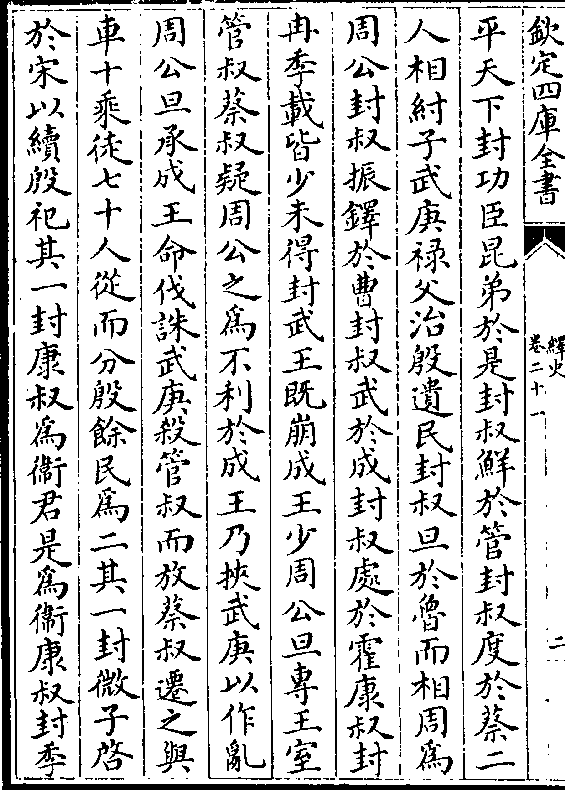 欽定四庫全書
繹史
卷二十一
二
平天下封功臣昆弟於是封叔鮮於管封叔度於蔡二
人相紂子武庚禄父治殷遺民封叔旦於魯而相周為
周公封叔振鐸於曹封叔武於成封叔處於霍康叔封
冉季載皆少未得封武王既崩成王少周公旦專王室
管叔蔡叔疑周公之為不利於成王乃挾武庚以作亂
周公旦承成王命伐誅武庚殺管叔而放蔡叔遷之與
車十乘徒七十人從而分殷餘民為二其一封微子啓
於宋以續殷祀其一封康叔為衞君是為衞康叔封季